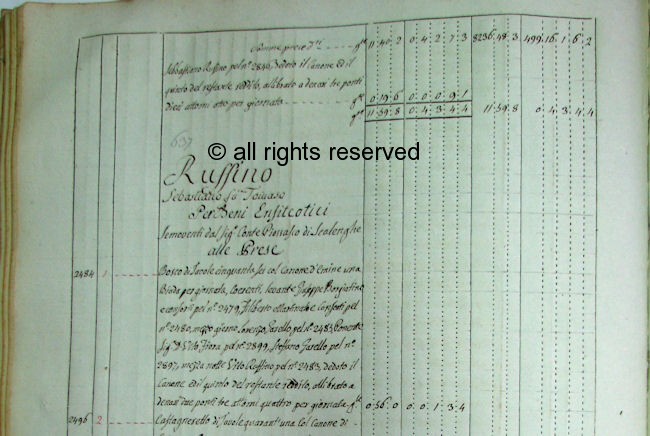 Somme precedᵗⁱ gᵗᵉ 11·40·2 0·4·2·7·3 8236·48·3 499·16·1·6·2
Sebastiano Ruffino pel nº 2846, dedoto il Canone ed il
quinto del restante reddito, allibrato a denari tre ponti
dieci attomi otto per giornata gᵗᵉ 0·19·6 0·0·0·9·1
gᵗᵉ 11·59·8 0·4·3·4·4 11·59·8 0·4·3·4·4
637
© all rights reserved
Ruffino
Sebastiano fù Tomaso
Per Beni Enfiteotici
Semoventi dal Sigʳ Conte di Scalenghe
alle Prese
2484 1 Bosco di Tavole cinquanta sei col Canone d'emine una
Biada per giornata, Coerenti, levante Giuseppe
e consorti pel nº 2479, Gilberto e Consorti pel
nº 2480, mezzo giorno Lorenzo Garello pel nº 2485 Ponente
Sigʳ D. Vitto, Fiora pel nº 2899, Steffano Garello pel nº
2897, mezza notte Vitto Ruffino pel nº 2483, dedoto il
Canone ed il quinto del restante reddito, allibrato a
denari due ponti tre attomi quattro per giornata gᵗᵉ 0·56·0 0·0·1·3·4
2496 2 Castagneretto di Tavole quarant'una Col Canone di